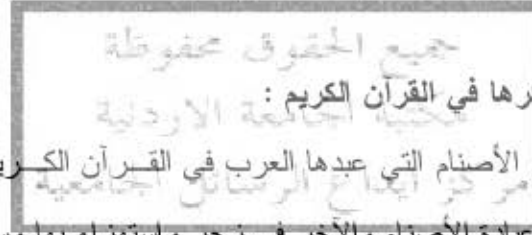 جميع الحقوق محفوظة
رها في القرآن الكريم :
مكتبة الجامعة الاردنية
الأصنام التي عبدها العرب في القــرآن الكــري
مركز ايداع الرسائل الجامعية